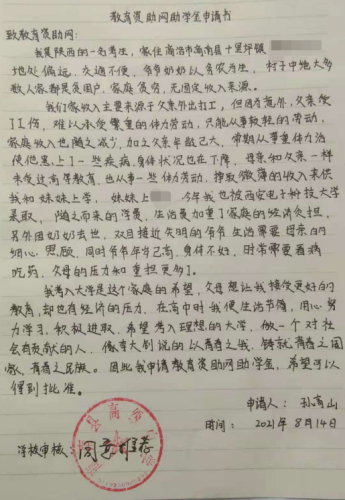 教育资助网助学金申请书
致教育资助网:
我是陕西的一名考生,家住商洛市商南县十里坪镇
地处偏远,交通不便,爷爷奶奶以务农为生,村子中绝大多
数人家都是贫困户,家庭贫穷,无固定收入来源。
我们家收入主要来源于父亲外出打工,但因意外,父亲受
了工伤,难以承受繁重的体力劳动,只能从事较轻的劳动,
家庭收入也随之减少,加之父亲年龄已大,常期从事重体力活
使他患上了一些疾病,身体状况也在下降,母亲和父亲一样
未受过高等教育,也从事一些体力劳动,挣取微薄的收入来供
我和妹妹上学,妹妹上 今年我也被西安电子科技大学
录取,随之而来的学费,生活费加重了家庭的经济负担,
另外因奶奶去世,双目接近失明的爷爷生活需要母亲的
细心照顾,同时爷爷年岁已高,身体不好,时常需要看病
吃药,父母的压力和重担更多了。
我考入大学是这个家庭的希望,父母想让我接受更好的
教育,却也有经济的压力,在高中时我便生活节俭,用心努
力学习,积极进取,希望考入理想的大学,做一个对社
会有贡献的人,像李大钊说的以青春之我,铸就青春之国
家,青春之民族。因此我申请教育资助网助学金,希望可以
得到批准。
申请人:孙高山
时间:2021年8月14日
学校审核: